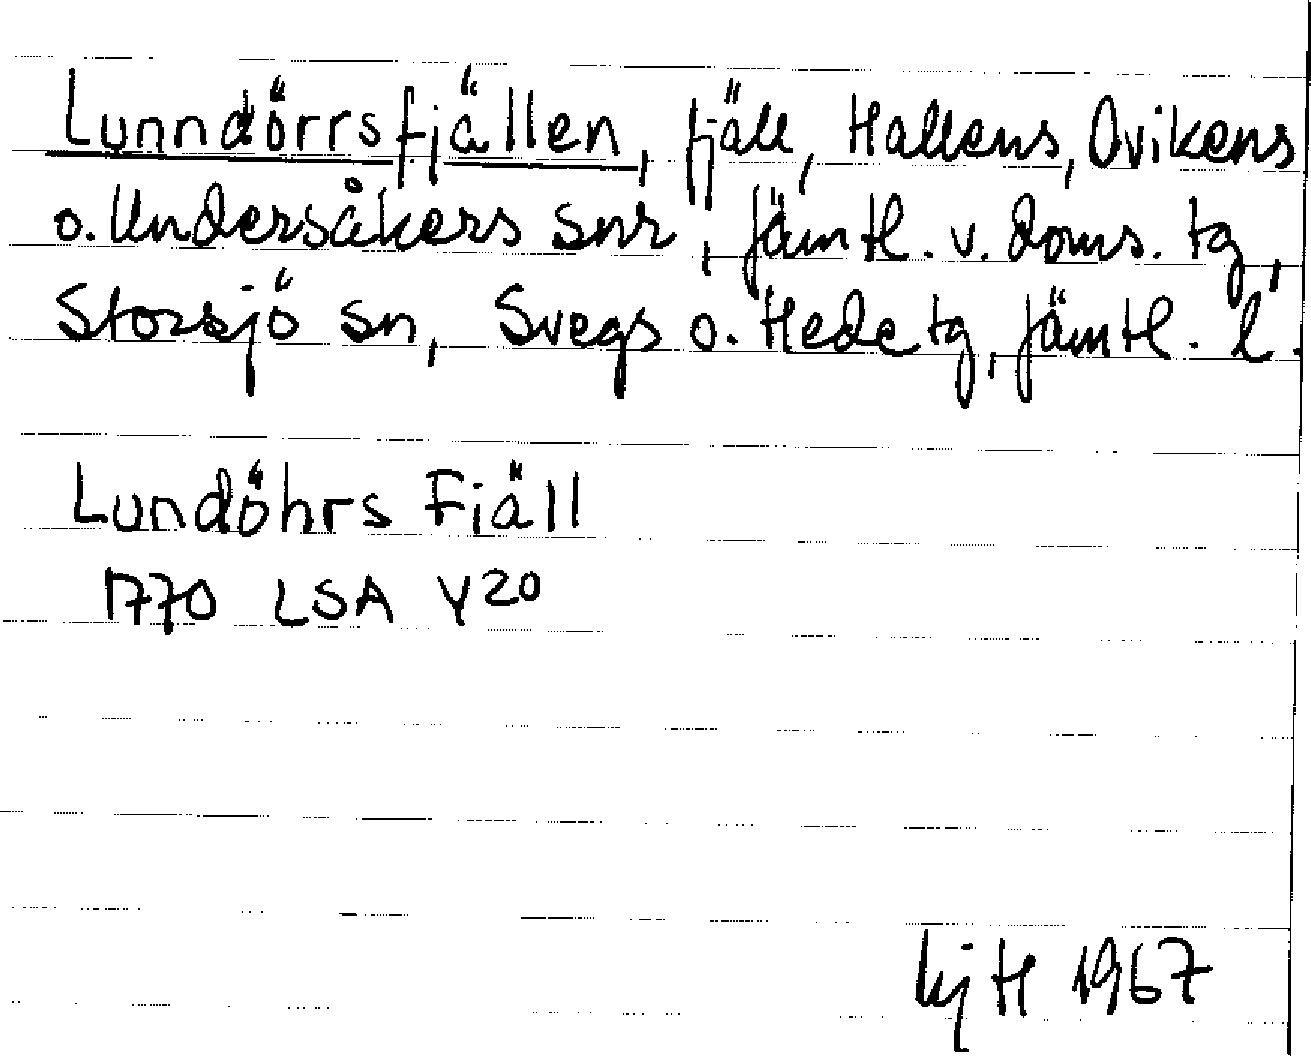 Lunndörrsfjällen, fjäll, Hallens, Ovikens
o. Undersåkers snr, Jämtl. v. doms. tg,
Storsjö sn, Svegs o. Hede tg, Jämtl. l.
Lundöhrs Fiäll
1770 LSA Y20
1967